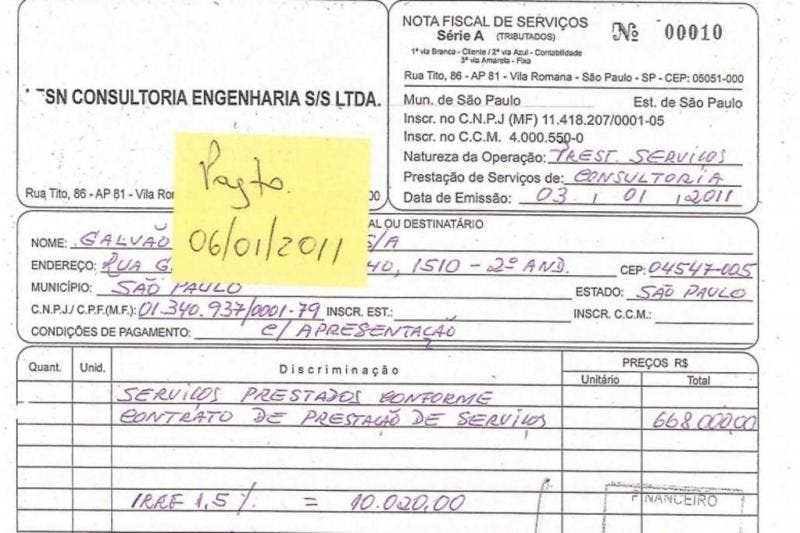 NOTA FISCAL DE SERVIÇOS
Série A (TRIBUTADOS)
Nº 00010
1ª via Branca - Cliente / 2ª via Azul - Contabilidade
3ª via Amarela - Fixa
Rua Tito, 86 - AP 81 - Vila Romana - São Paulo - SP - CEP: 05051-000
SN CONSULTORIA ENGENHARIA S/S LTDA.
Mun. de São Paulo Est. de São Paulo
Inscr. no C.N.P.J (MF) 11.418.207/0001-05
Inscr. no C.C.M. 4.000.550-0
Natureza da Operação: PREST. SERVIÇOS
Prestação de Serviços de: CONSULTORIA
Data de Emissão: 03 / 01 / 2011
Rua Tito, 86 - AP 81 - Vila
Pagto.
06/01/2011
OU DESTINATÁRIO
NOME: GALVÃO S/A
ENDEREÇO: RUA G 1510 - 2º AND. CEP: 04547-005
MUNICÍPIO: SÃO PAULO ESTADO: SÃO PAULO
C.N.P.J./ C.P.F.(M.F.): 01.340.937/0001-79 INSCR. EST.: INSCR. C.C.M.:
CONDIÇÕES DE PAGAMENTO: C/ APRESENTAÇÃO
Quant. Unid. Discriminação PREÇOS R$
Unitário Total
SERVIÇOS PRESTADOS CONFORME
CONTRATO DE PRESTAÇÃO DE SERVIÇOS 668.000,00
IRRF 1,5% = 10.020,00
FINANCEIRO